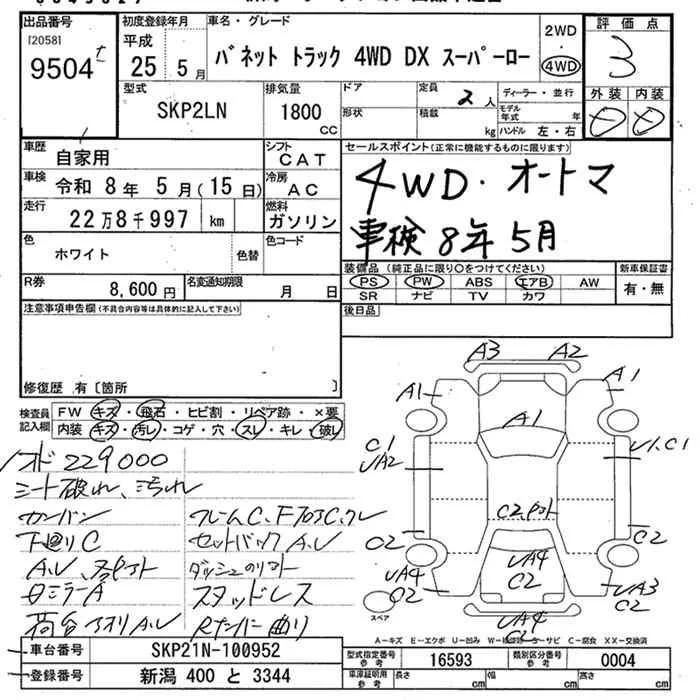 出品番号
[2058]
9504
初度登録年月
平成
25 5月
車名・グレード
バネット トラック 4WD DX スーパーロー
2WD
・
4WD
評価点
3
外装 内装
型式
SKP2LN
排気量
1800
CC
ドア
形状
定員
2人
積載
kg
ディーラー・並行
モデル年式 年
ハンドル 左・右
車歴
自家用
シフト
CAT
車検
令和 8年 5月(15日)
冷房
AC
走行
22万8千997 km
燃料
ガソリン
色
ホワイト
色替
色コード
R券
8,600円
名変通知期限
月 日
セールスポイント(正常に機能するものに限ります)
4WD・オートマ
車検 8年 5月
装備品(純正品に限り○をつけてください)
PS PW ABS エアB AW
SR ナビ TV カワ
新車保証書
有・無
後日品
注意事項申告欄(不具合内容等は具体的に記入して下さい)
修復歴 有〔箇所 〕
検査員
記入欄
FW キズ・飛石・ヒビ割・リペア跡・×要
内装 キズ・汚レ・コゲ・穴・スレ・キレ・破レ
メオド 229000
シート破れ、汚れ
カンバン
下廻りC
セットバックA.U
ミラーA
スタッドレス
荷台アオリA.U
Rナンバー曲り
A3 A2
A1 A1
A1
C1
UA2
U1.C1
C2
C2
C2
UA4
C2
UA4
C2
UA3
C2
UA4
C2
スペア
A－キズ E－エクボ U－凹み S－サビ C－腐食 XX－交換済
車台番号
SKP21N-100952
登録番号
新潟 400 と 3344
型式指定番号
参考
16593
類別区分番号
参考
0004
車庫証明用
参考
長さ cm
幅 cm
高さ cm